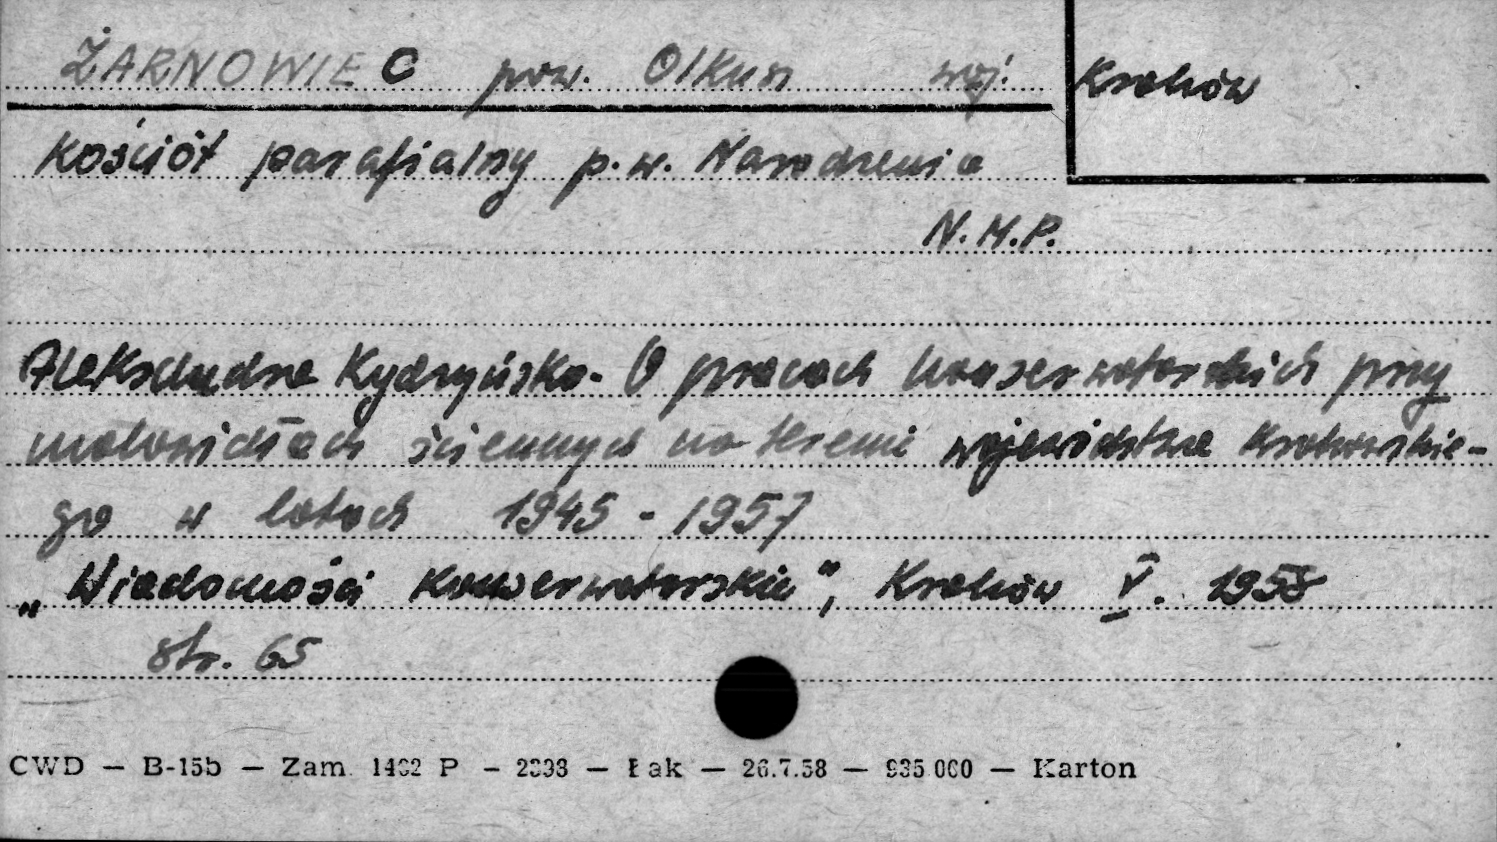 ŻARNOWIEC pow. Olkusz woj. Kraków
Kościół parafialny p.w. Narodzenia
N.M.P.
Aleksandra Kydryńska. O pracach konserwatorskich przy
malowidłach ściennych na terenie województwa krakowskie-
go w latach 1945 - 1957
„Wiadomości konserwatorskie”, Kraków V. 1958
str. 65
CWD — B-15b — Zam. 1462 P — 2338 — Łak — 26.7.58 — 935.000 — Karton